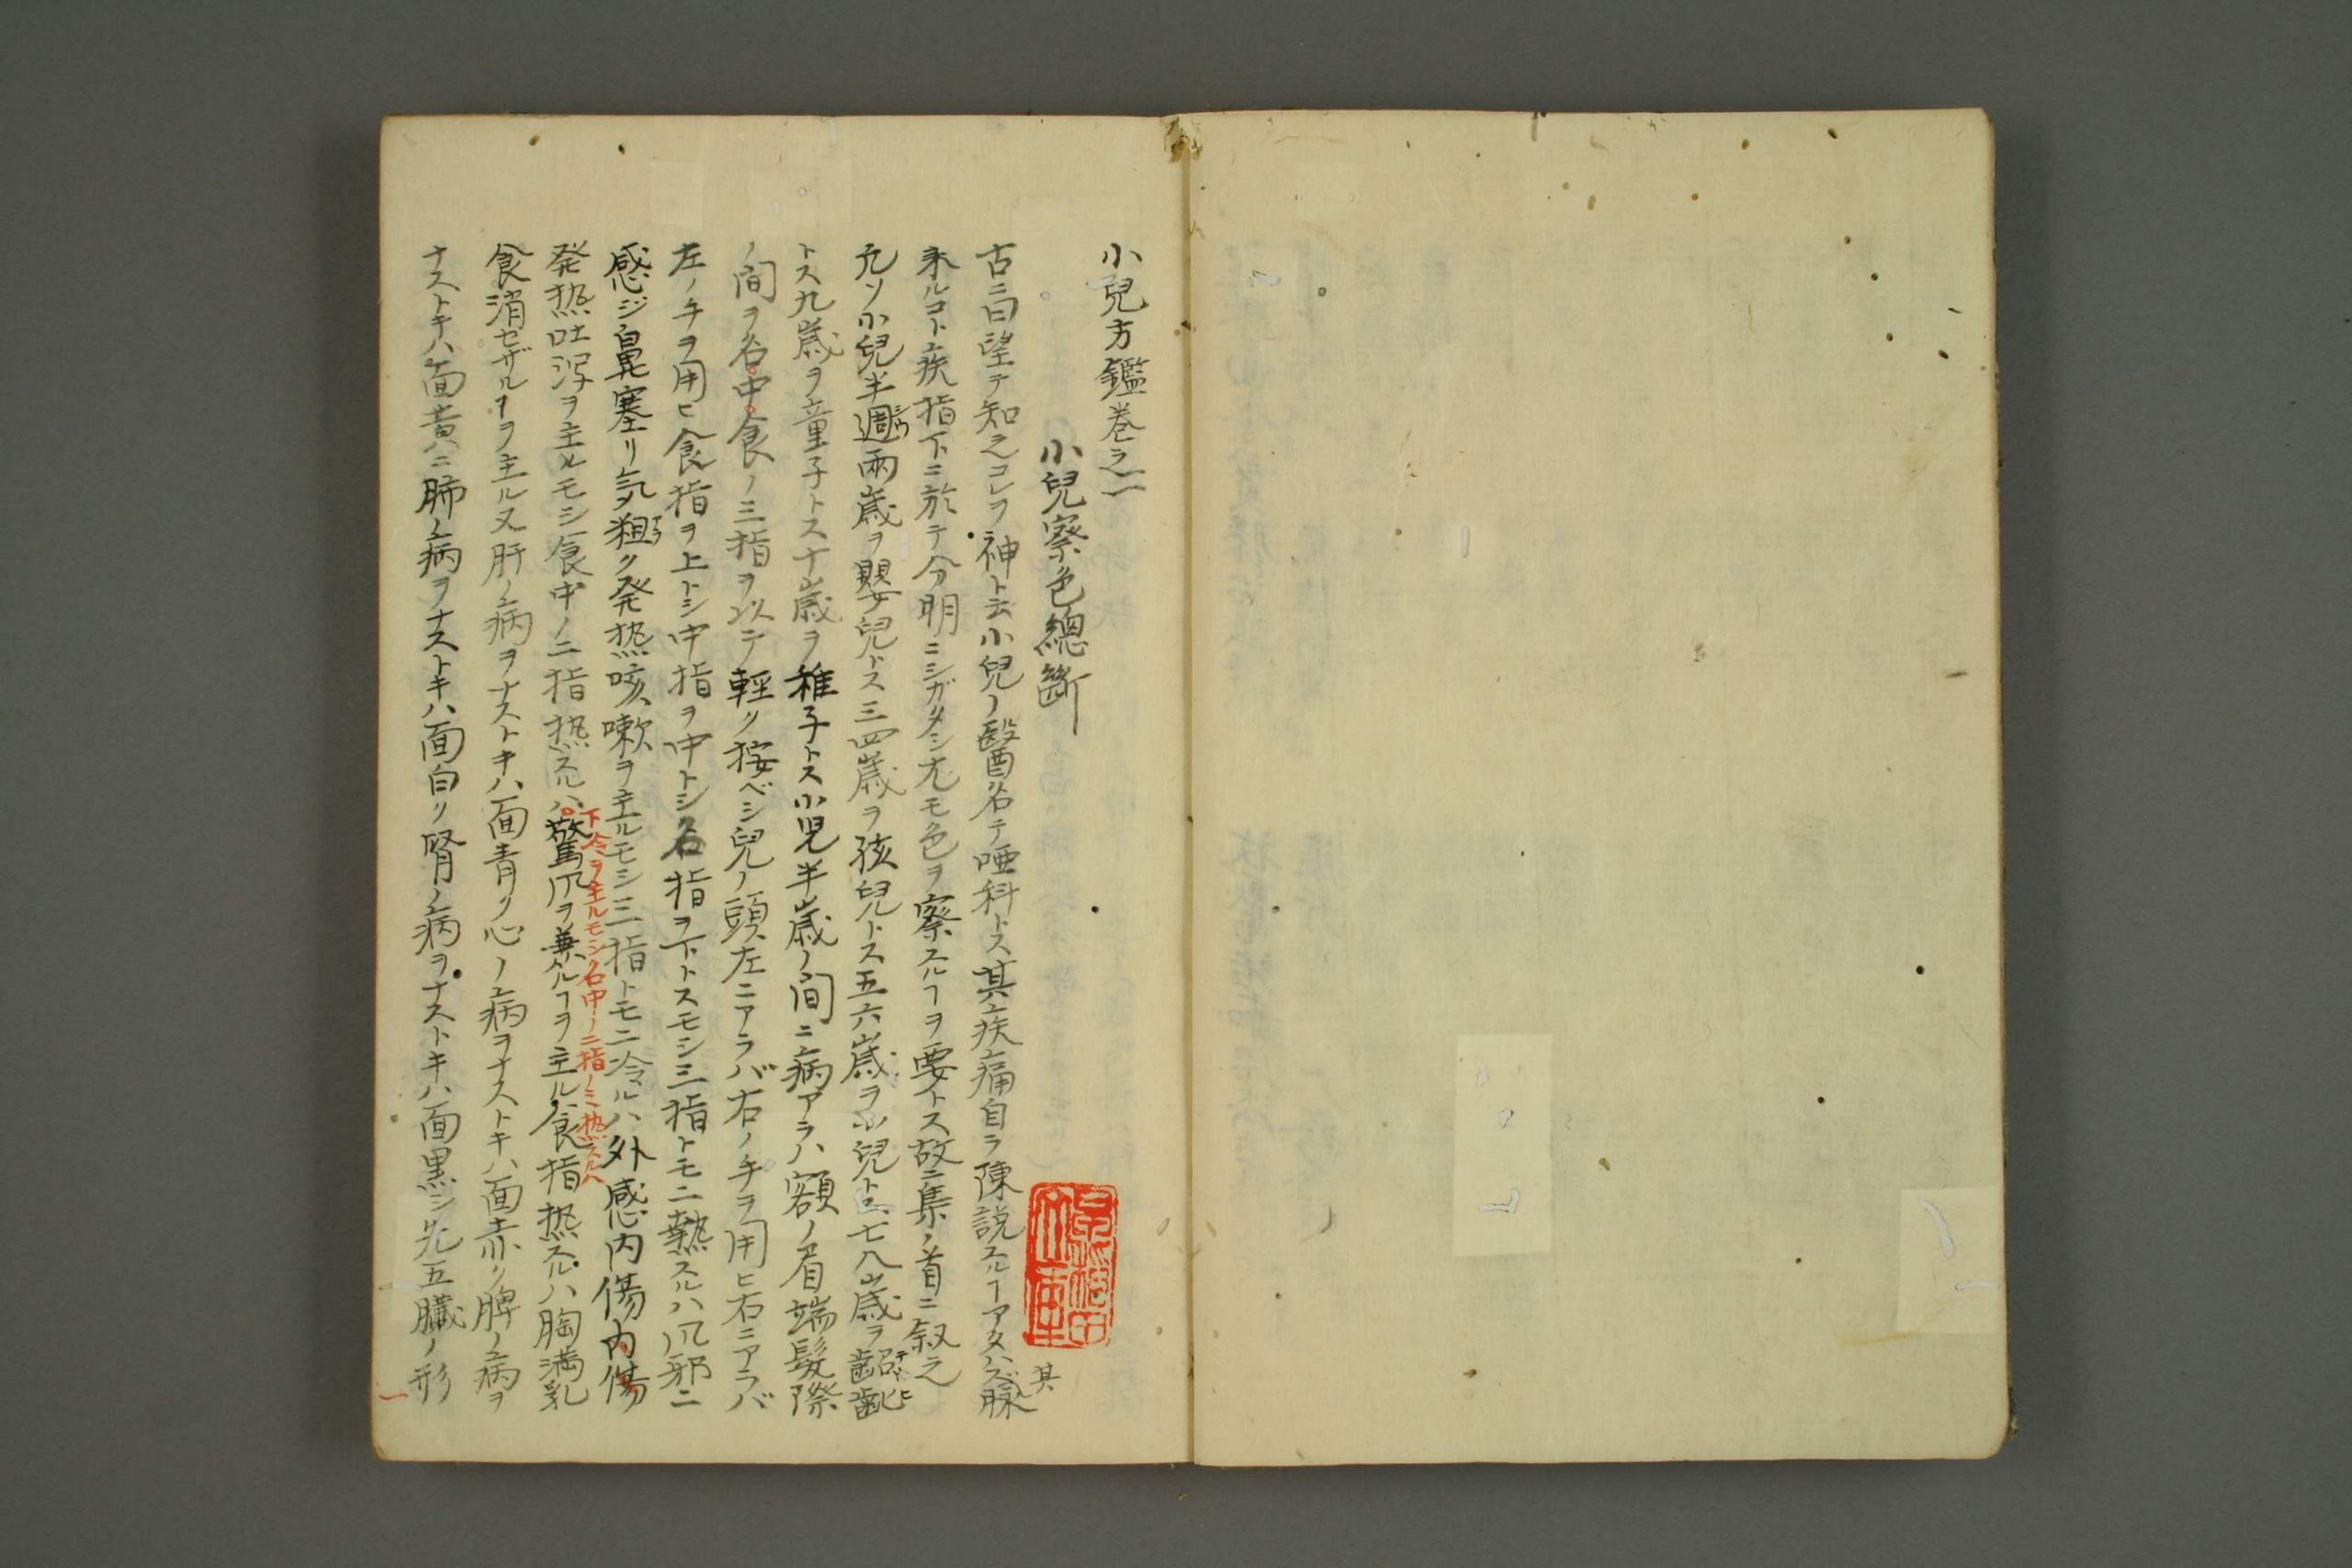 小兒方鑑巻之一
小兒察色總斷
古ニ曰望テ知之コレヲ神ト云小兒ノ醫名テ唖科トス其疾痛自ラ陳説スルヿアタハズ脉
其
来ルコト疾指下ニ於テ分明ニシガタシ尤モ色ヲ察スルヿヲ要トス故ニ集ノ首ニ叙之
凢ソ小兒半週兩歳ヲ嬰兒トス三四歳ヲ孩兒トス五六歳ヲ小兒トス七八歳ヲ齠齔
トス九歳ヲ童子トス十歳ヲ稚子トス小児半歳ノ間ニ病アラハ額ノ眉端髮際
ノ間ヲ名中食ノ三指ヲ以テ輕ク按ベシ兒ノ頭左ニアラバ右ノ手ヲ用ヒ右ニアラバ
左ノ手ヲ用ヒ食指ヲ上トシ中指ヲ中トシ名指ヲ下トスモシ三指トモニ熱スルハ风邪ニ
感ジ鼻塞リ気粗ク発热咳嗽ヲ主ルモシ三指トモニ冷ルハ外感内傷内傷
下冷ヲ主ルモシ名中ノ二指ノミ热スルハ
発热吐瀉ヲ主ルモシ食中ノ二指热スルハ驚风ヲ兼ルヿヲ主ル食指热スルハ胸満乳
食消セザルヿヲ主ル又肝ノ病ヲナストキハ面青ク心ノ病ヲナストキハ面赤ク脾ノ病ヲ
ナストキハ面黄ニ肺ノ病ヲナストキハ面白ク腎ノ病ヲナストキハ面黒シ先五臓ノ形